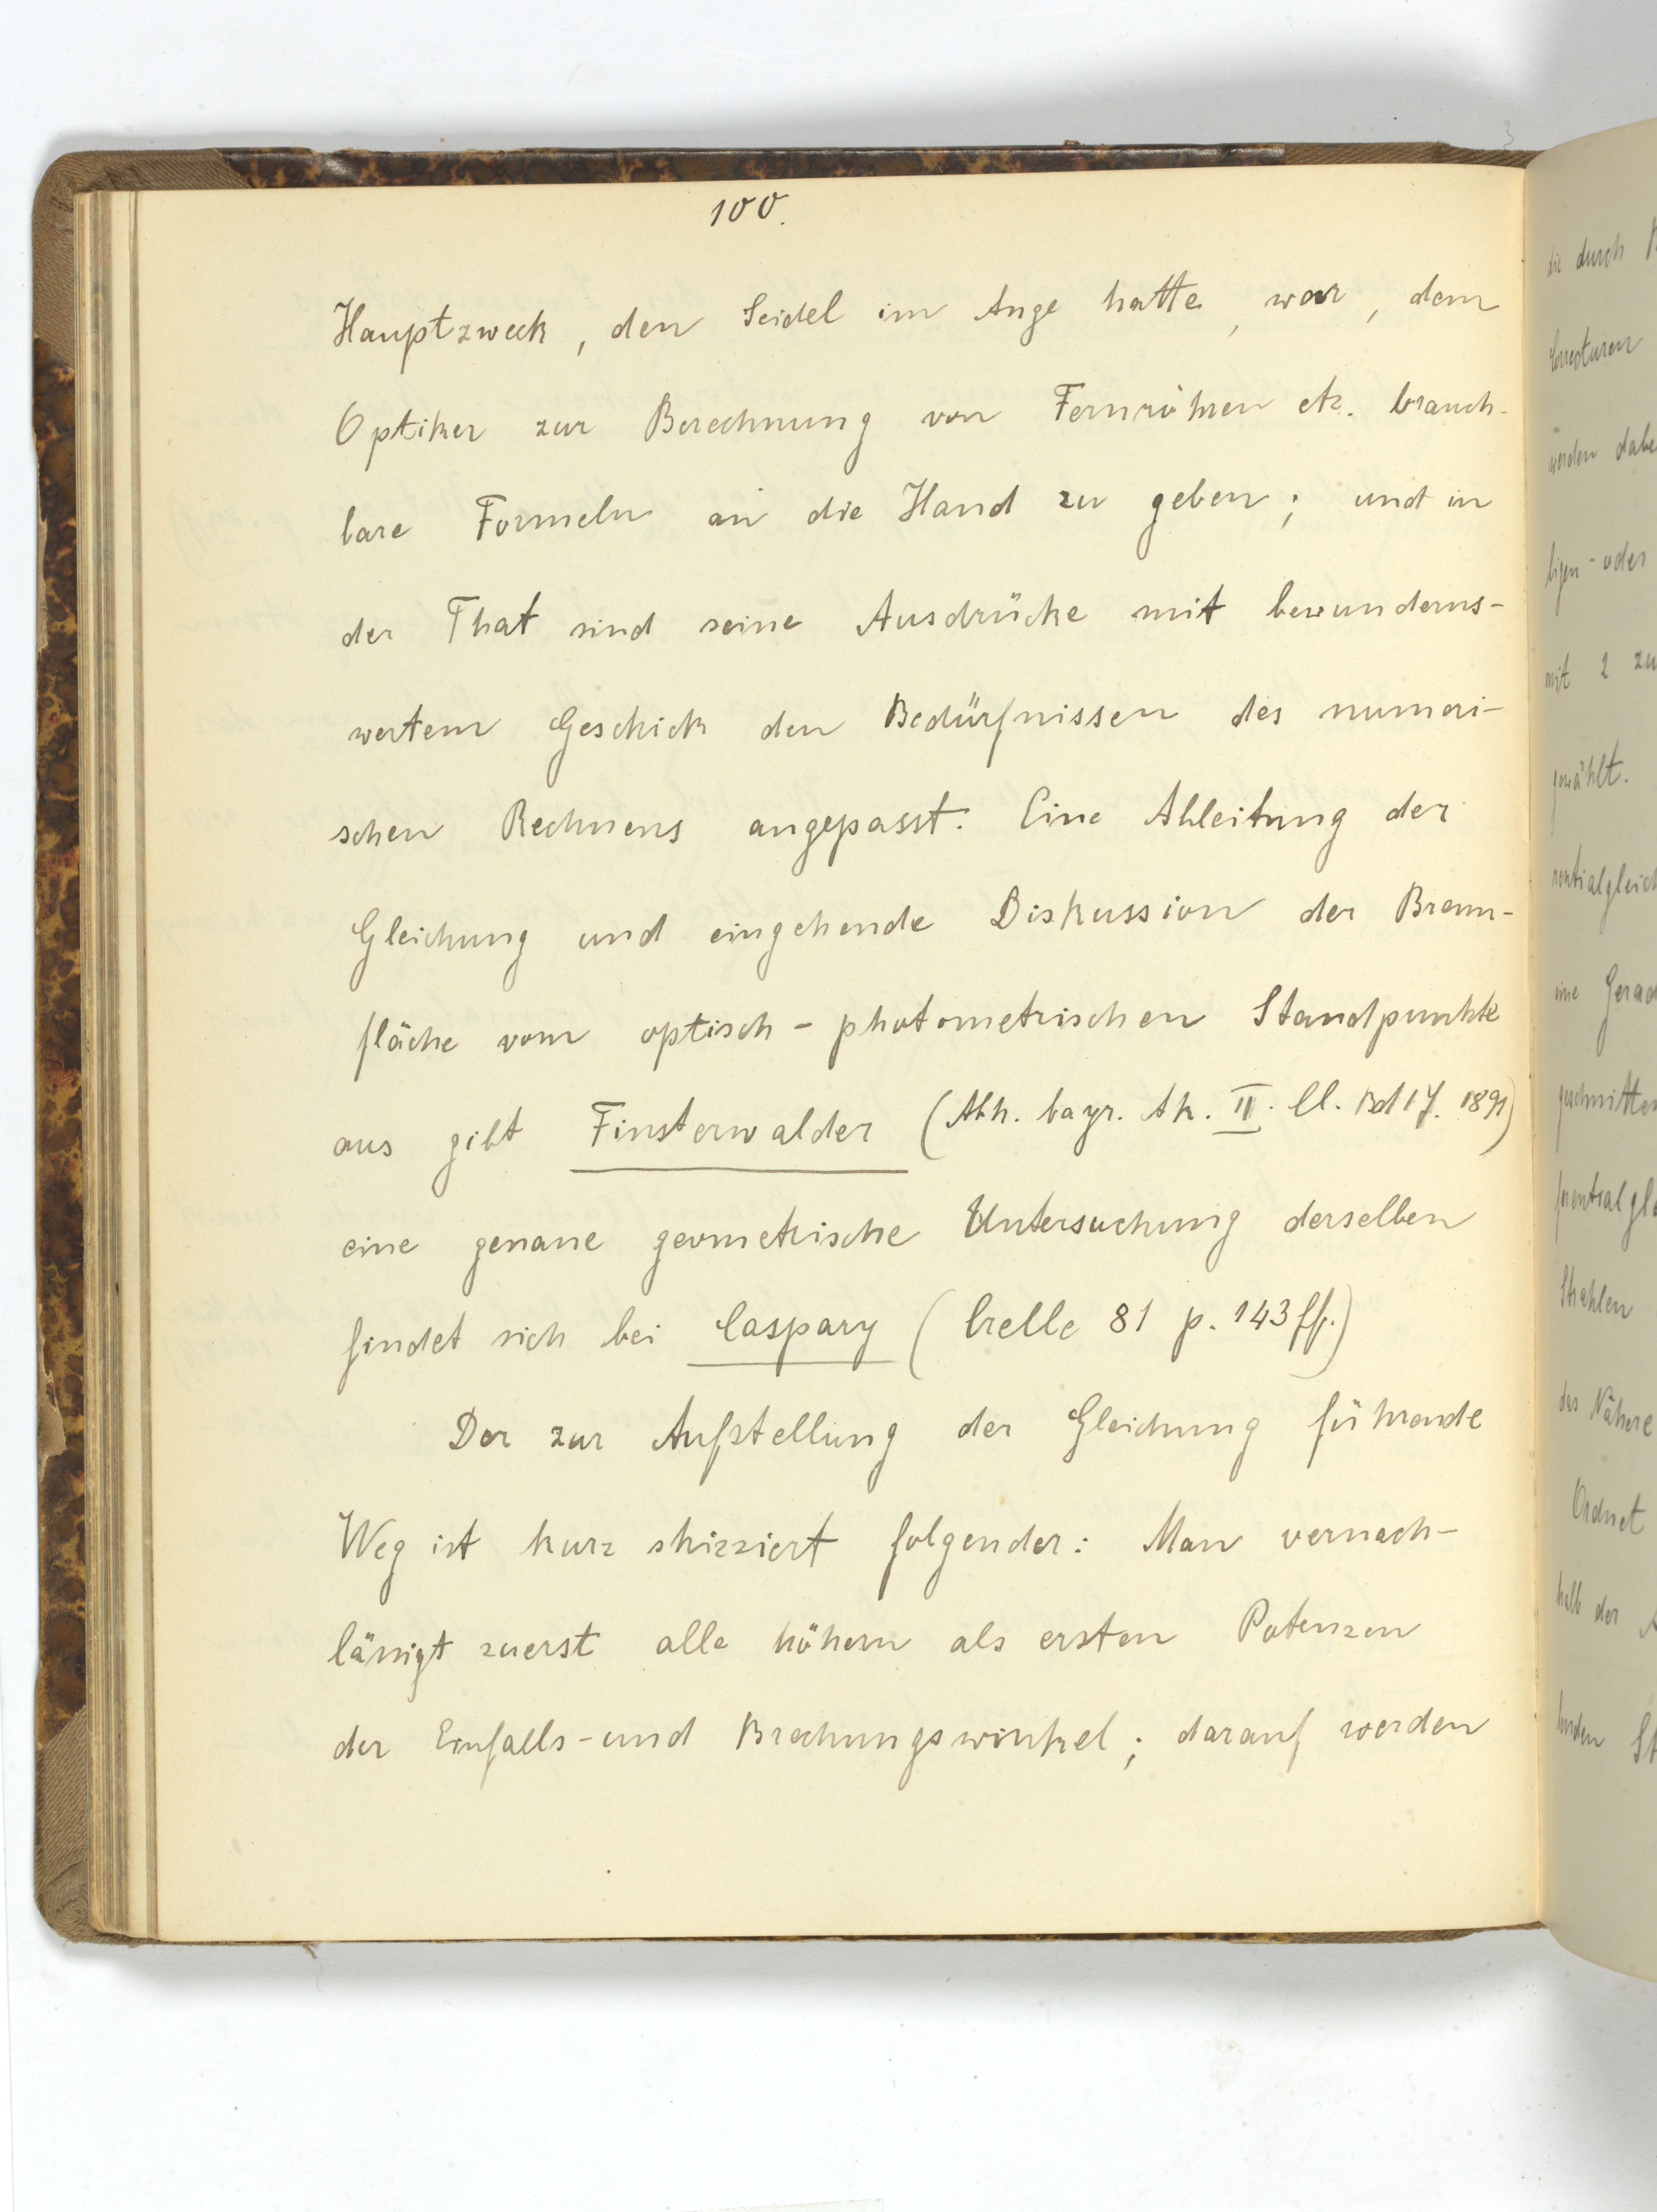 100.
Hauptzweck, den Seidel im Auge hatte, war, dem
Optiker zur Berechnung von Fernröhren etc. brauch-
bare Formeln an die Hand zu geben; und in
der That sind seine Ausdrücke mit bewunderns-
wertem Geschick den Bedürfnissen des numeri-
schen Rechnens angepasst. Eine Ableitung der
Gleichung und eingehende Diskussion der Brenn-
fläche vom optisch-photometrischen Standpunkte
aus gibt Finsterwalder (Abh. bayr. Ak. II. Cl. Bd 17. 1891)
eine genaue geometrische Untersuchung derselben
findet sich bei Caspary (Crelle 81 p. 143 ff.)
Der zur Aufstellung der Gleichung führende
Weg ist kurz skizziert folgender: Man vernach-
lässigt zuerst alle höhern als ersten Potenzen
der Einfalls- und Brechungswinkel; darauf werden
die durch
Correcturen
werden dabe
ligen- oder
mit 2 zu
gewählt.
rentialgleich
eine Gerad
geschnitten
ferentialgle
Strahlen
das Nähere
Ordnet
halb der
St